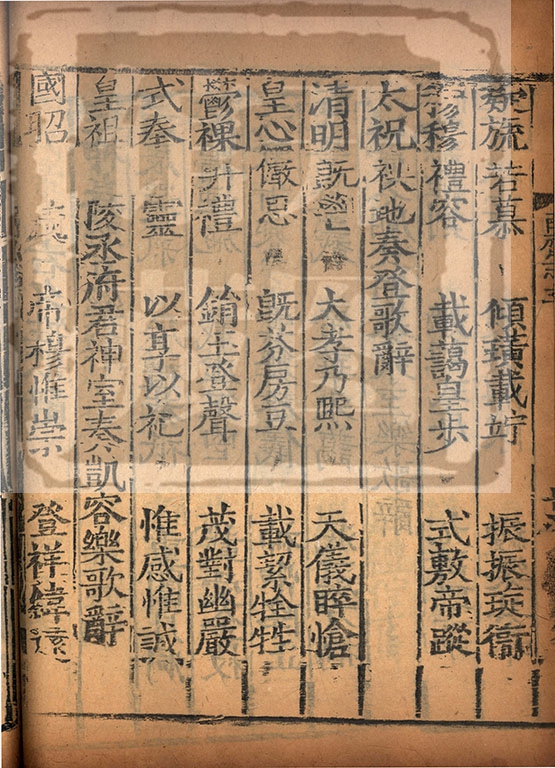 旒若慕 傾璜載竚 振振琁衞
穆禮容 載藹皇步 式敷帝蹤
太祝祼地奏登歌辭
清明既鬯 大孝乃熙 天儀睟愴
皇心儼思 既芬房豆 載絜牷牲
鬱祼升禮 鋗玉登聲 茂對幽嚴
式奉靈 以享以祀 惟感惟誠
皇祖陵丞府君神室奏凱容樂歌辭
國昭 帝穆惟崇 登祥緯遠